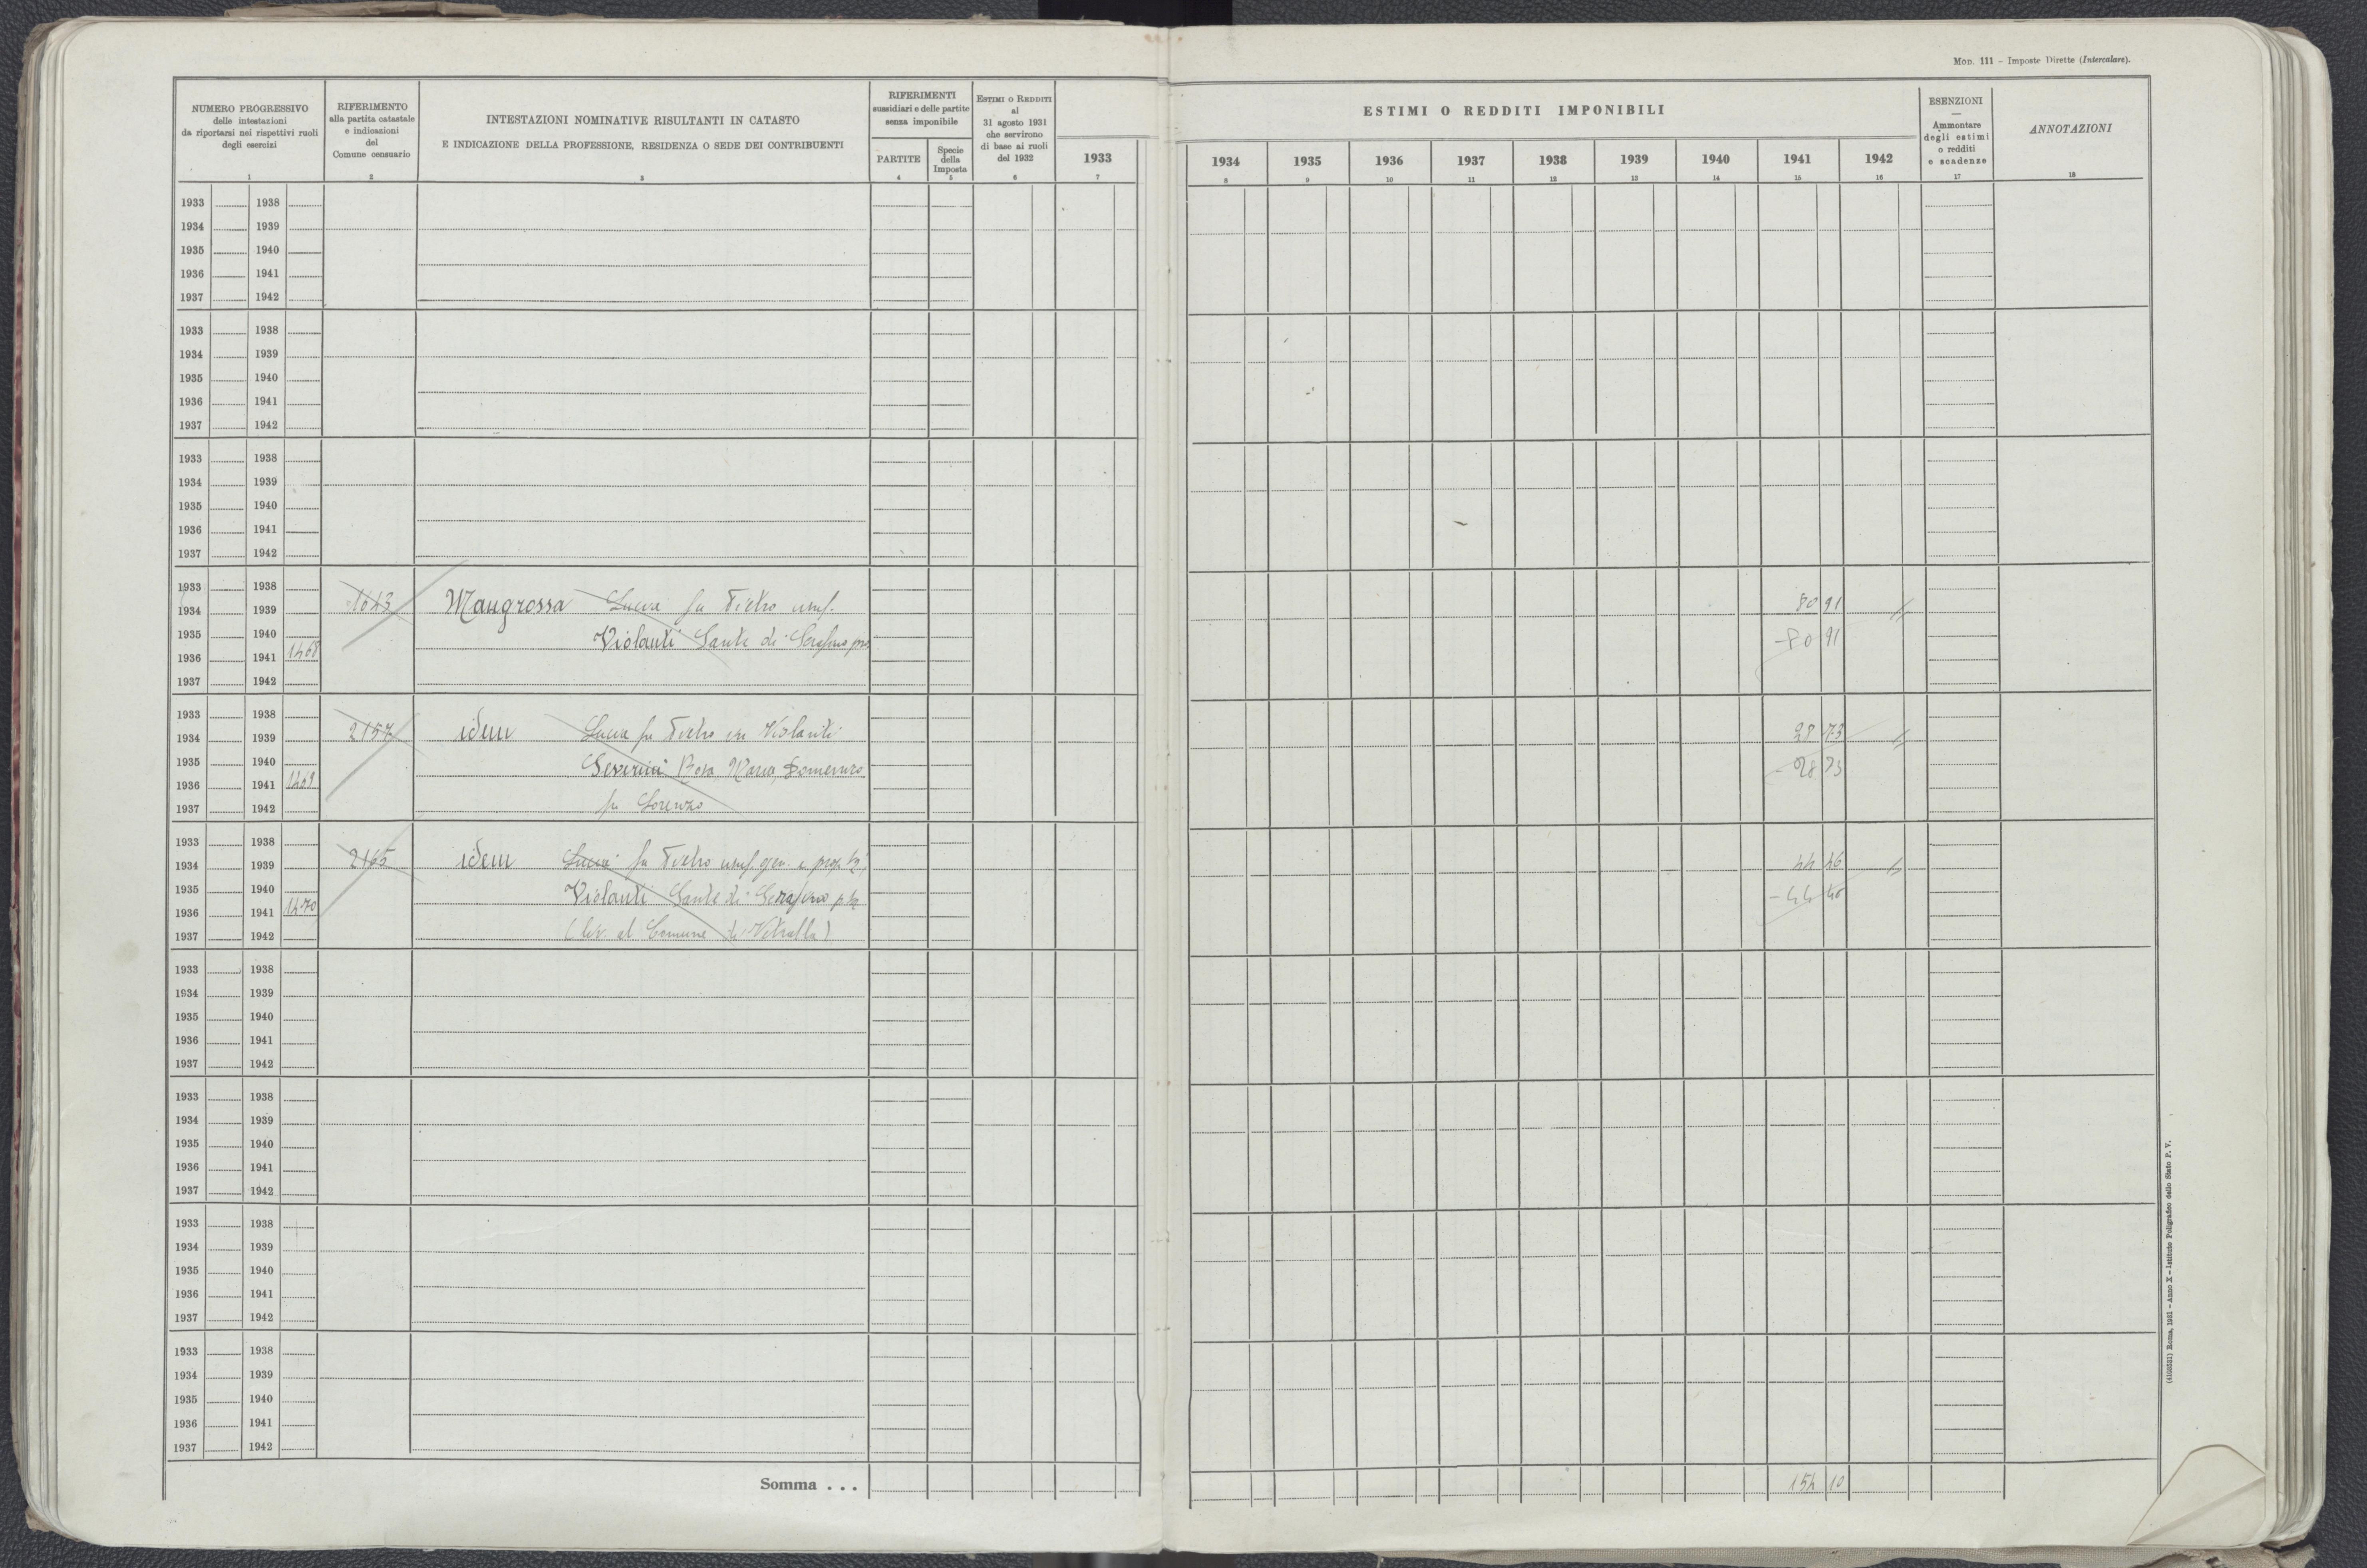 Mod. 111 - Imposte Dirette (Intercalare).
NUMERO PROGRESSIVO
delle intestazioni
da riportarsi nei rispettivi ruoli
degli esercizi
1
RIFERIMENTO
alla partita catastale
e indicazioni
del
Comune censuario
2
INTESTAZIONI NOMINATIVE RISULTANTI IN CATASTO
E INDICAZIONE DELLA PROFESSIONE, RESIDENZA O SEDE DEI CONTRIBUENTI
3
RIFERIMENTI
sussidiari e delle partite
senza imponibile
PARTITE
4
Specie
della
Imposta
5
ESTIMI O REDDITI
al
31 agosto 1931
che servirono
di base ai ruoli
del 1932
6
1933
7
ESTIMI O REDDITI IMPONIBILI
1934 1935 1936 1937 1938 1939 1940 1941 1942
8 9 10 11 12 13 14 15 16
ESENZIONI
—
Ammontare
degli estimi
o redditi
e scadenze
17
ANNOTAZIONI
18
1933 1938
1934 1939
1935 1940
1936 1941
1937 1942
1933 1938
1934 1939
1935 1940
1936 1941
1937 1942
1933 1938
1934 1939
1935 1940
1936 1941
1937 1942
1933 1938
1934 1939 1643 Maugrossa Lucia fu Pietro usuf. 80 91
1935 1940 Violanti Sante di Serafino pro - 80 91
1936 1941 1468
1937 1942
1933 1938
1934 1939 2157 idem Lucia fu Pietro in Violanti 28 73
1935 1940 Severini Rosa Maria, Domenico - 28 73
1936 1941 1469
1937 1942 fu Lorenzo
1933 1938
1934 1939 2165 idem Lucia fu Pietro usuf. gen. e prop 1/2 44 46
1935 1940 Violanti Sante di Serafino p 1/2 - 44 46
1936 1941 1470
1937 1942 (liv. al Comune di Vetralla)
1933 1938
1934 1939
1935 1940
1936 1941
1937 1942
1933 1938
1934 1939
1935 1940
1936 1941
1937 1942
1933 1938
1934 1939
1935 1940
1936 1941
1937 1942
1933 1938
1934 1939
1935 1940
1936 1941
1937 1942
Somma . . . 154 10
(4108551) Roma, 1931 - Anno X - Istituto Poligrafico dello Stato P. V.